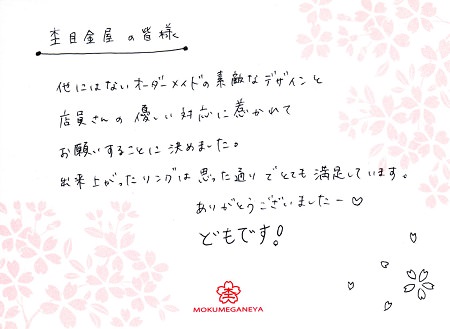 杢目金屋 の皆様
他にはないオーダーメイドの素敵なデザインと
店員さんの優しい対応に惹かれて
お願いすることに決めました。
出来上がったリングは思った通りでとても満足しています。
ありがとうございましたー♡
どもです!
杢
MOKUMEGANEYA